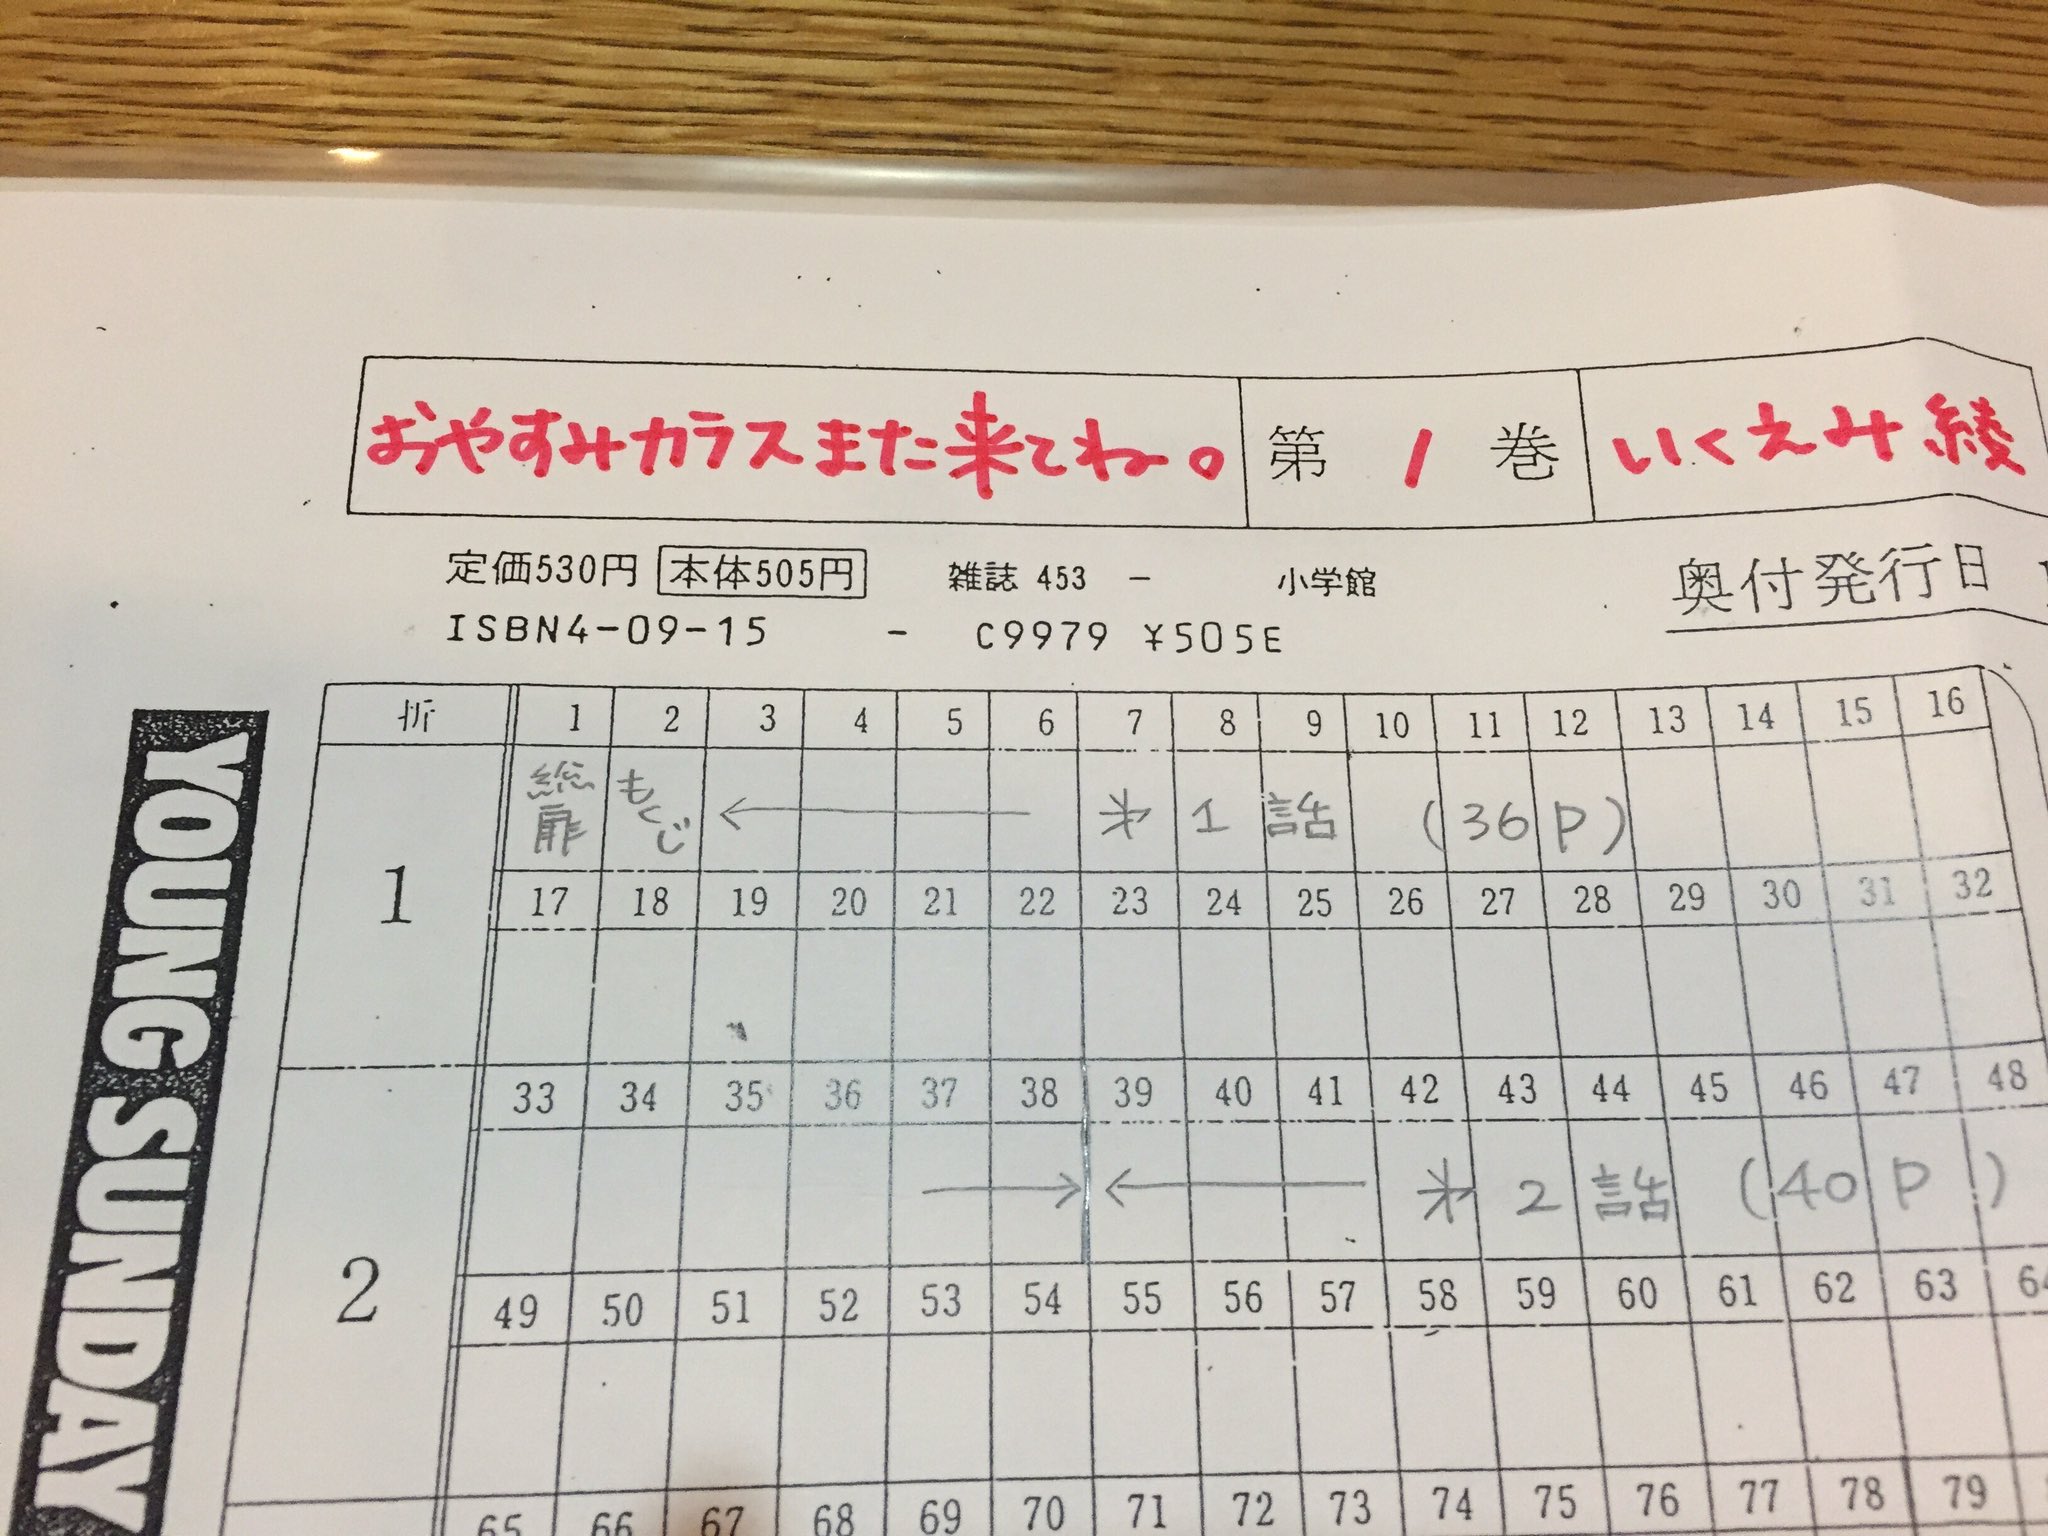 おやすみカラスまた来てね。 第 1 巻 いくえみ綾
定価530円 本体505円 雑誌 453 − 小学館
奥付発行日
ISBN4-09-15 - C9979 ¥505E
YOUNG SUNDAY
折 1 2 3 4 5 6 7 8 9 10 11 12 13 14 15 16
1 総扉 もくじ ← 才1話 (36P)
17 18 19 20 21 22 23 24 25 26 27 28 29 30 31 32
33 34 35 36 37 38 39 40 41 42 43 44 45 46 47 48
2 → ← 才2話 (40P)
49 50 51 52 53 54 55 56 57 58 59 60 61 62 63 64
65 66 67 68 69 70 71 72 73 74 75 76 77 78 79